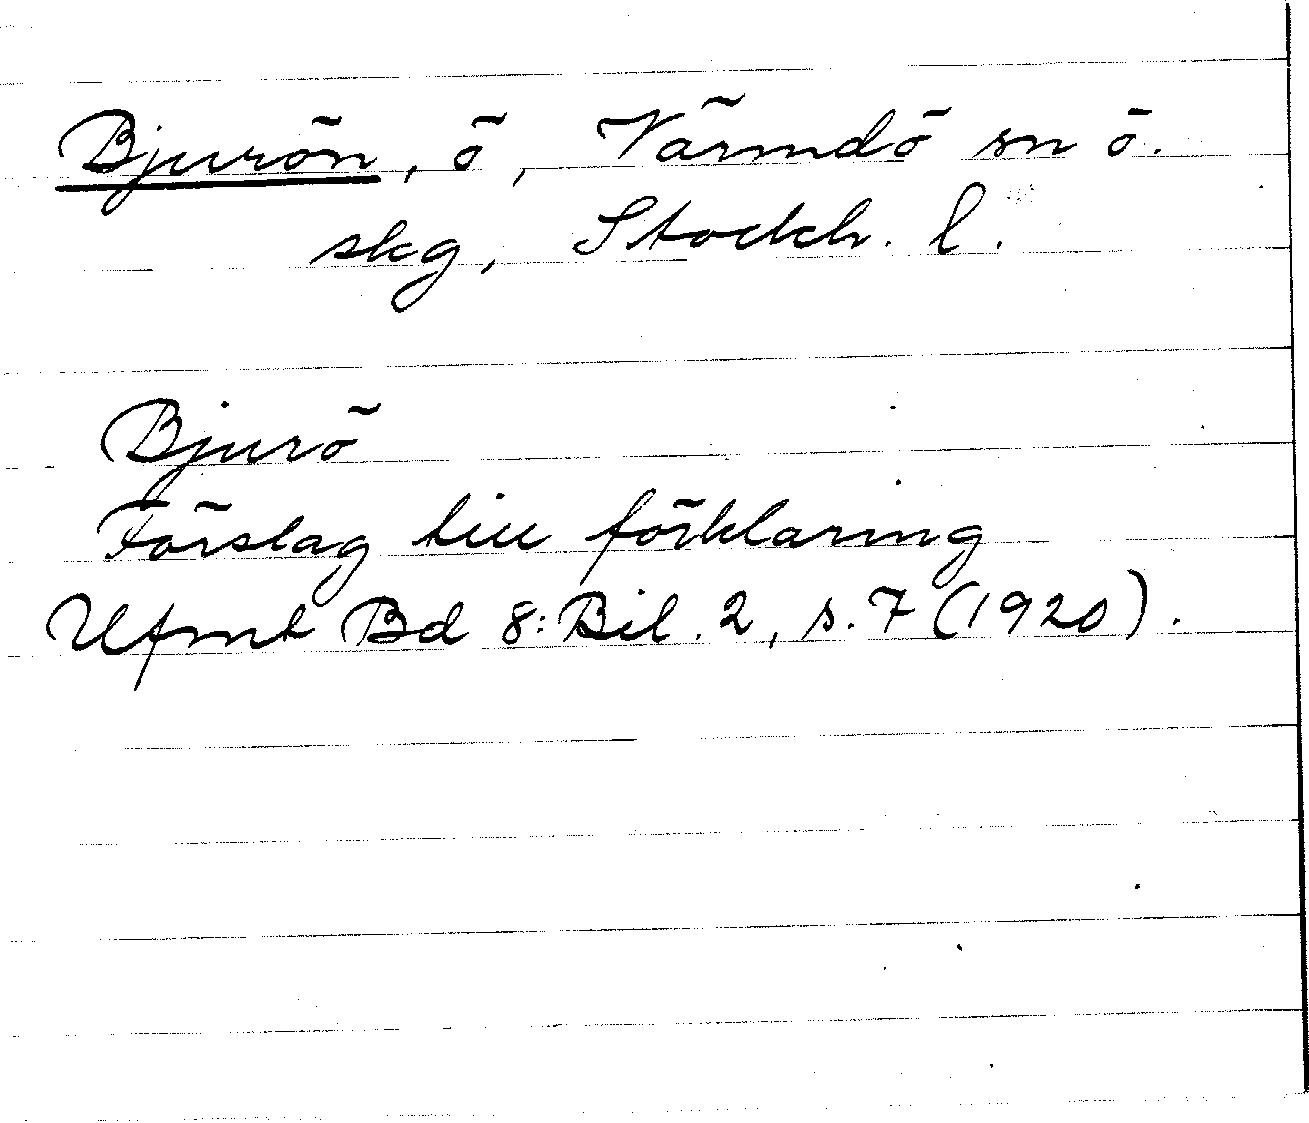 Bjurön, ö, Värmdö sn ö.
skg, Stockh. l.
Bjurö
Förslag till förklaring
Ufmt Bd 8: Bil. 2, s. 7 (1920).